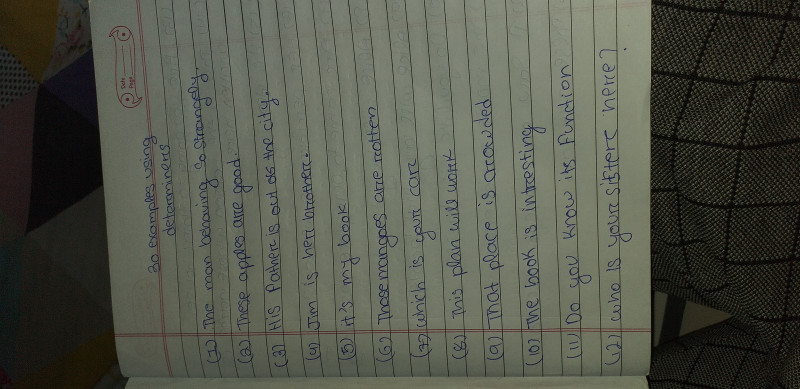 Date
Page
30 examples using
determiners
(1) The man behaving so strangely.
(2) These apples are good.
(3) His Father is out of the city.
(4) Jim is her brother.
(5) it's my book
(6) Those mangoes are rotten
(7) which is your care
(8) This plan will work
(9) That place is crowded
(10) The book is intresting
(11) Do you know its Function
(12) who is your sistere here?